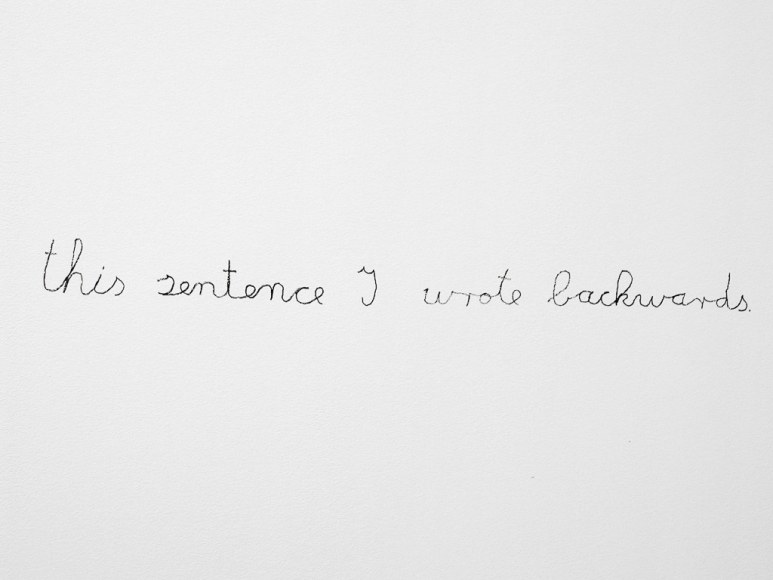 this sentence I wrote backwards.